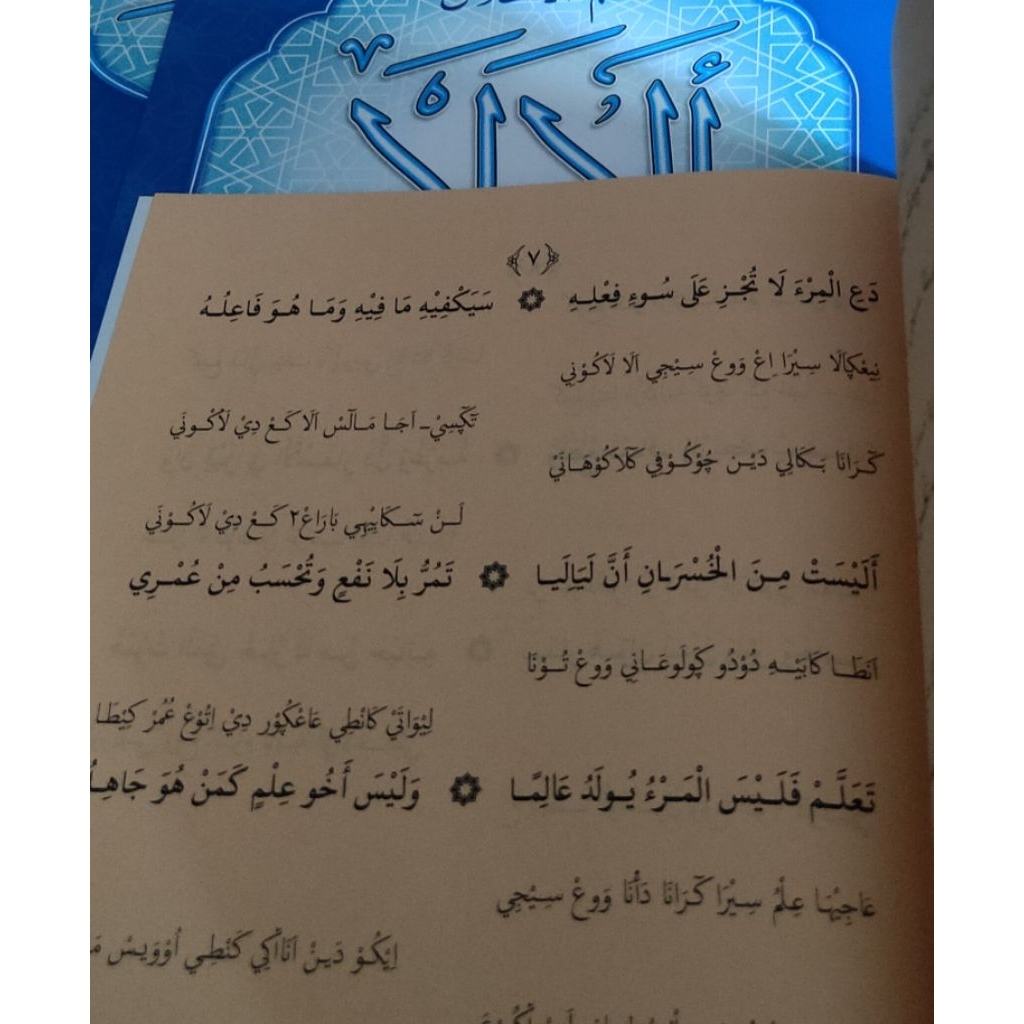 ألالا
﴿٧﴾
دَعِ الْمِرْءَ لَا تُجْزِ عَلَى سُوءِ فِعْلِهِ ۞ سَيَكْفِيْهِ مَا فِيْهِ وَمَا هُوَ فَاعِلُهُ
نِيعْݢَالَا سِيْرَا اِڠْ وَوڠْ سِيْجِي اَلَا لَاكُوْنِي
تَكْڤسِيْـ اَجَا مَالَسْ اَلَا كَڠْ دِيْ لَاكُوْنَي
كَرَانَا بَكَالِي دَيْن چُوْكُوْڤِي كَلَاكُوْهَانَيْ
لَنْ سَكَابَيْهِي بَارَاڠْ٢ كَڠْ دِيْ لَاكُوْنَي
أَلَيْسَتْ مِنَ الْخُسْرَانِ أَنَّ لَيَالِيَا ۞ تَمُرُّ بِلَا نَفْعٍ وَتُحْسَبُ مِنْ عُمْرِي
اَنطَا كَابَيْهِ دُوْدُو كَڤولَوعَانِي وَوڠْ تُوْنَا
لِيْوَاتَيْ كَانْطِي عَاڠْكُوْر دِيْ اِتُوْڠْ عُمُرْ كِيْطَا
تَعَلَّمْ فَلَيْسَ الْمَرْءُ يُولَدُ عَالِمًا ۞ وَلَيْسَ أَخُو عِلْمٍ كَمَنْ هُوَ
عَاجِيْهَا عِلْمُ سِيْرَا كَرَانَا دَأْنَا وَوڠْ سِيْجِي
اِيْكُوْ دَيْنْ اَنَاأَكِي كَنْطِي اُوْوَيْسْ